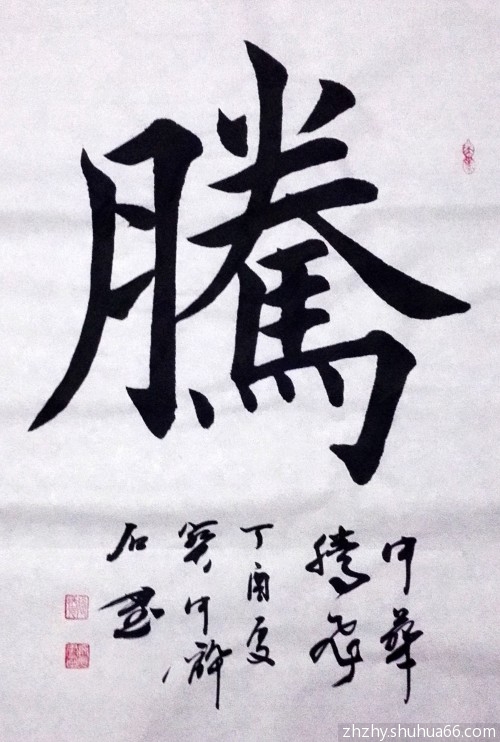 騰
中華
騰飛
丁酉夏
中許
石書
zhzhy.shuhua66.com